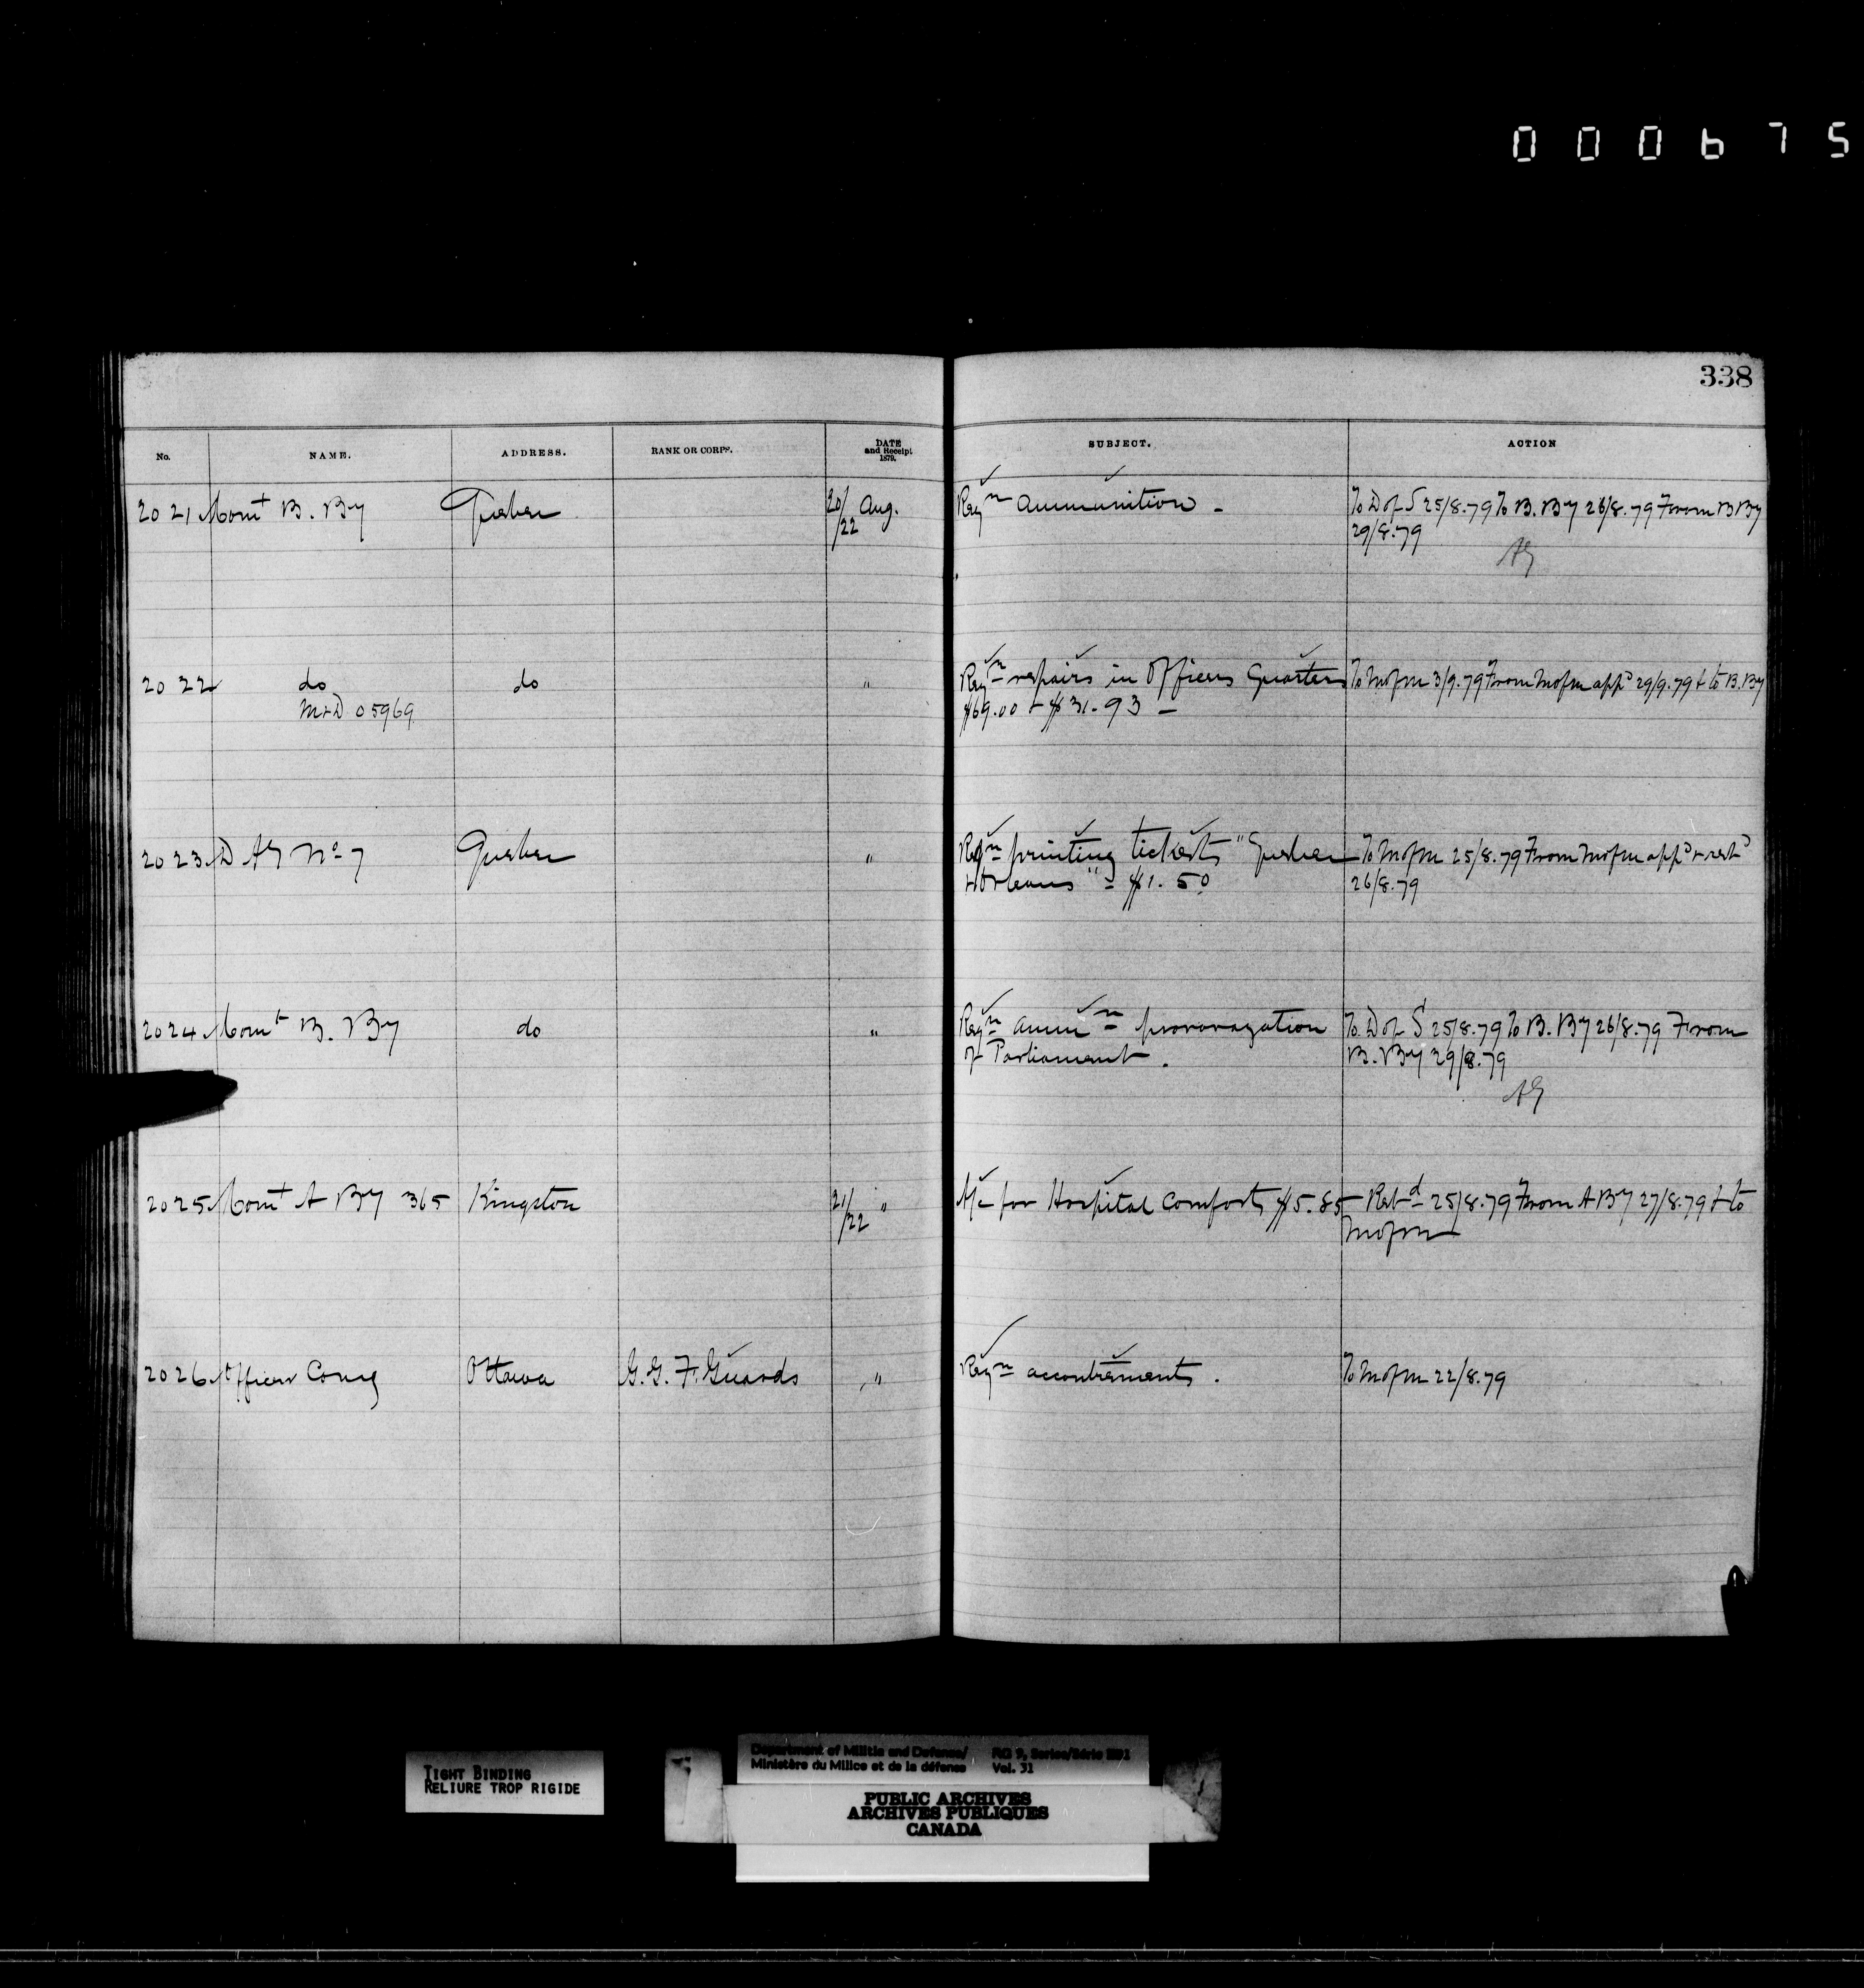 000675
338
No. NAME. ADDRESS. RANK OR CORPS. DATE and Receipt 1879. SUBJECT. ACTION
2021 Comt B. By Quebec 20/22 Aug. Reqn ammunition - To D of S 25/8.79 To B. By 26/8.79 From B By
29/8.79
AG
2022 do do " Reqn repairs in Officers Quarters To Mofm 3/9.79 From Mofm appd 29/9.79 & to B. By
M&D 05969 $69.00 & $31.93 -
2023 D AG No 7 Quebec " Reqn printing tickets "Quebec To Mofm 25/8.79 From Mofm appd & retd
& Orleans" - $1.50 26/8.79
2024 Comt B. By do " Reqn ammn prorogation To D of S 25/8.79 To B. By 26/8.79 From
of Parliament. B. By 29/8.79
AG
2025 Comt A By 365 Kingston 21/22 " A/c for Hospital Comforts $5.85 - Retd 25/8.79 From A By 27/8.79 & to
Mofm
2026 Officer Comg Ottawa G. G. F. Guards " Reqn accoutrements. To Mofm 22/8.79
TIGHT BINDING
RELIURE TROP RIGIDE
Department of Militia and Defence/ RG 9, Series/Série
Ministère du Milice et de la défense Vol. 31
PUBLIC ARCHIVES
ARCHIVES PUBLIQUES
CANADA